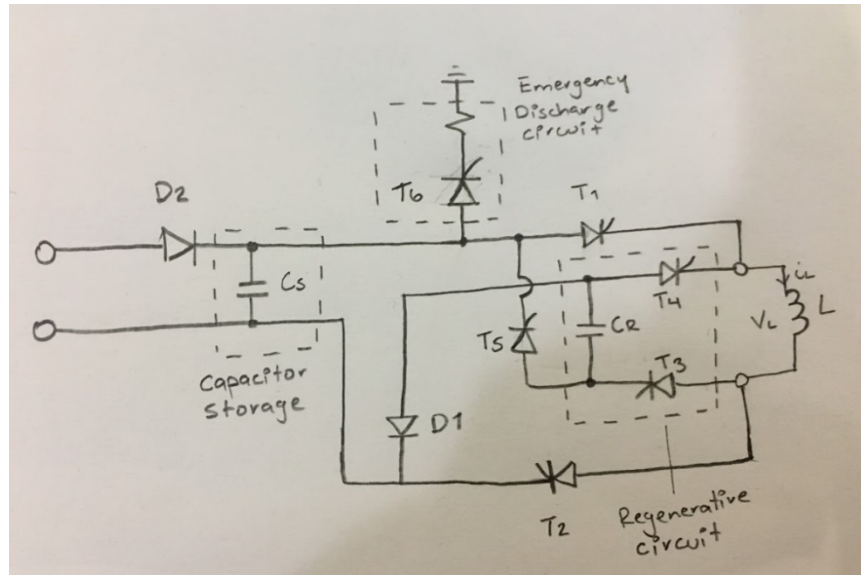 Emergency
Discharge
circuit
D2
T6
T1
Cs
T4
iL
T5
CR
VL
L
T3
Capacitor
storage
D1
T2
Regenerative
circuit